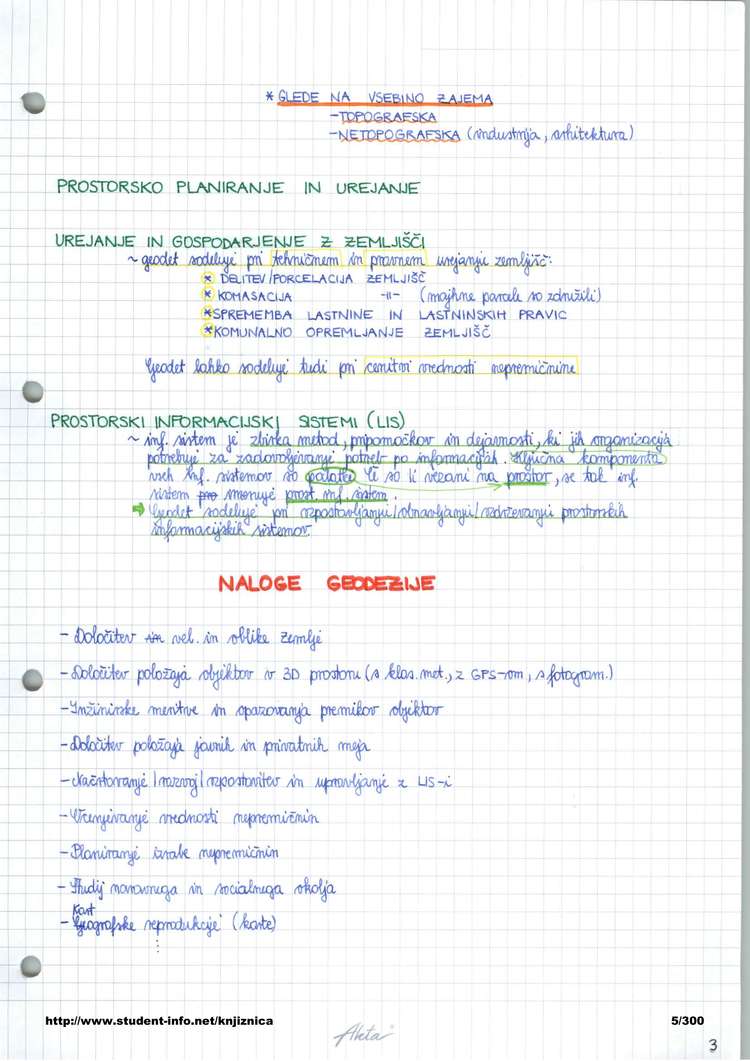 * GLEDE NA VSEBINO ZAJEMA
- TOPOGRAFSKA
- NETOPOGRAFSKA (industrija, arhitektura)
PROSTORSKO PLANIRANJE IN UREJANJE
UREJANJE IN GOSPODARJENJE Z ZEMLJIŠČI
~ geodet sodeluje pri tehničnem in pravnem urejanju zemljišč:
* DELITEV/PORCELACIJA ZEMLJIŠČ
* KOMASACIJA -II- (majhne parcele so združili)
* SPREMEMBA LASTNINE IN LASTNINSKIH PRAVIC
* KOMUNALNO OPREMLJANJE ZEMLJIŠČ
Geodet lahko sodeluje tudi pri cenitvi vrednosti nepremičnine
PROSTORSKI INFORMACIJSKI SISTEMI (LIS)
~ inf. sistem je zbirka metod, pripomočkov in dejavnosti, ki jih organizacija
potrebuje za zadovoljevanje potreb po informacijah. Ključna komponenta
vseh inf. sistemov so podatki. Če so ti vezani na prostor, se tak inf.
sistem pro imenuje prost. inf. sistem.
⇒ Geodet sodeluje pri vzpostavljanju/obnavljanju/vzdrževanju prostorskih
informacijskih sistemov.
NALOGE GEODEZIJE
- Določitev vel. in oblike Zemlje
- Določitev položaja objektov v 3D prostoru (s klas. met., z GPS-om, s fotogram.)
- Inžinirske meritve in opazovanja premikov objektov
- Določitev položaja javnih in privatnih meja
- Načrtovanje/razvoj/vzpostavitev in upravljanje z LIS-i
- Vrenjevanje vrednosti nepremičnin
- Planiranje izrabe nepremičnin
- Študij naravnega in socialnega okolja
Kart
- Geografske reprodukcije (karte)
⋮
http://www.student-info.net/knjiznica
5/300
3